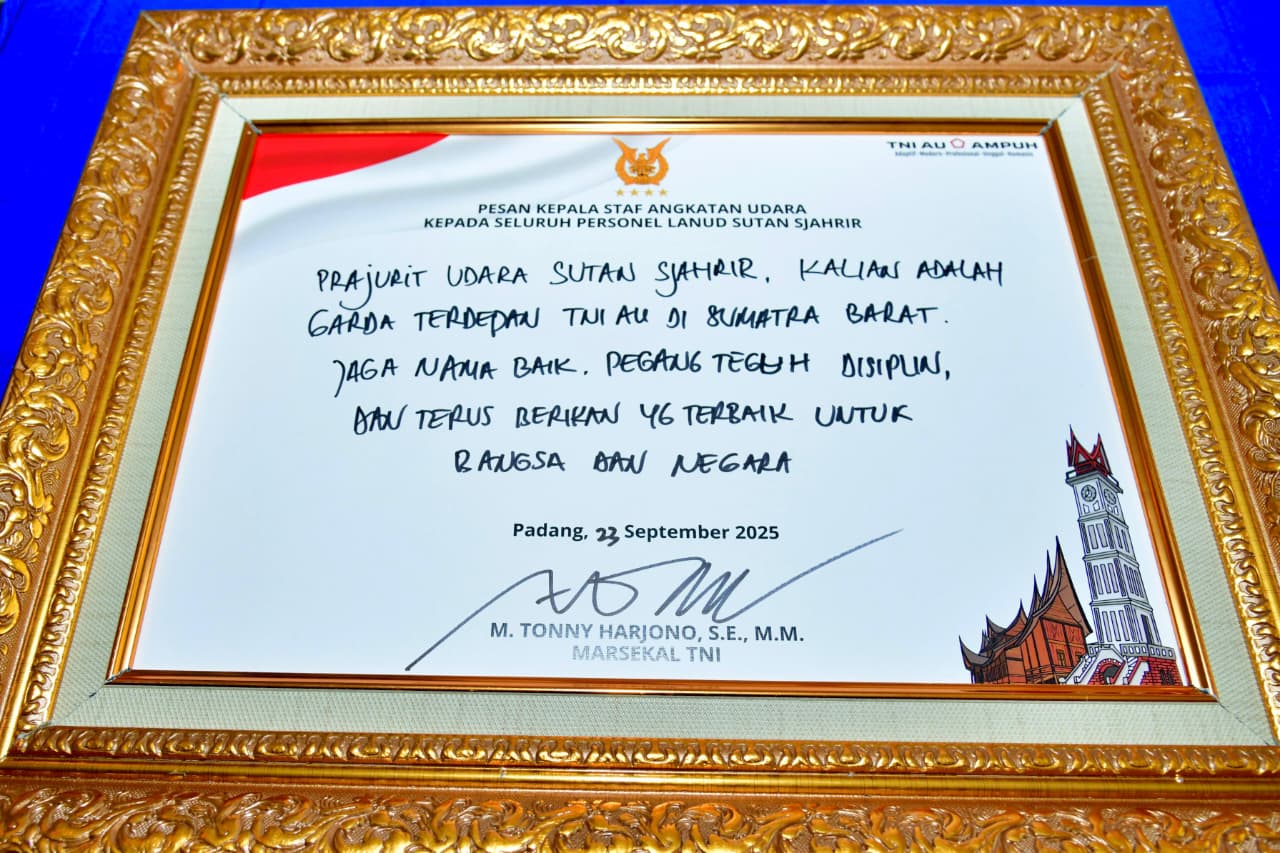 TNI AU AMPUH
Adaptif - Modern - Profesional - Unggul - Humanis
PESAN KEPALA STAF ANGKATAN UDARA
KEPADA SELURUH PERSONEL LANUD SUTAN SJAHRIR
PRAJURIT UDARA SUTAN SJAHRIR. KALIAN ADALAH
GARDA TERDEPAN TNI AU DI SUMATRA BARAT.
JAGA NAMA BAIK. PEGANG TEGUH DISIPLIN,
DAN TERUS BERIKAN YG TERBAIK UNTUK
BANGSA DAN NEGARA
Padang, 23 September 2025
M. TONNY HARJONO, S.E., M.M.
MARSEKAL TNI